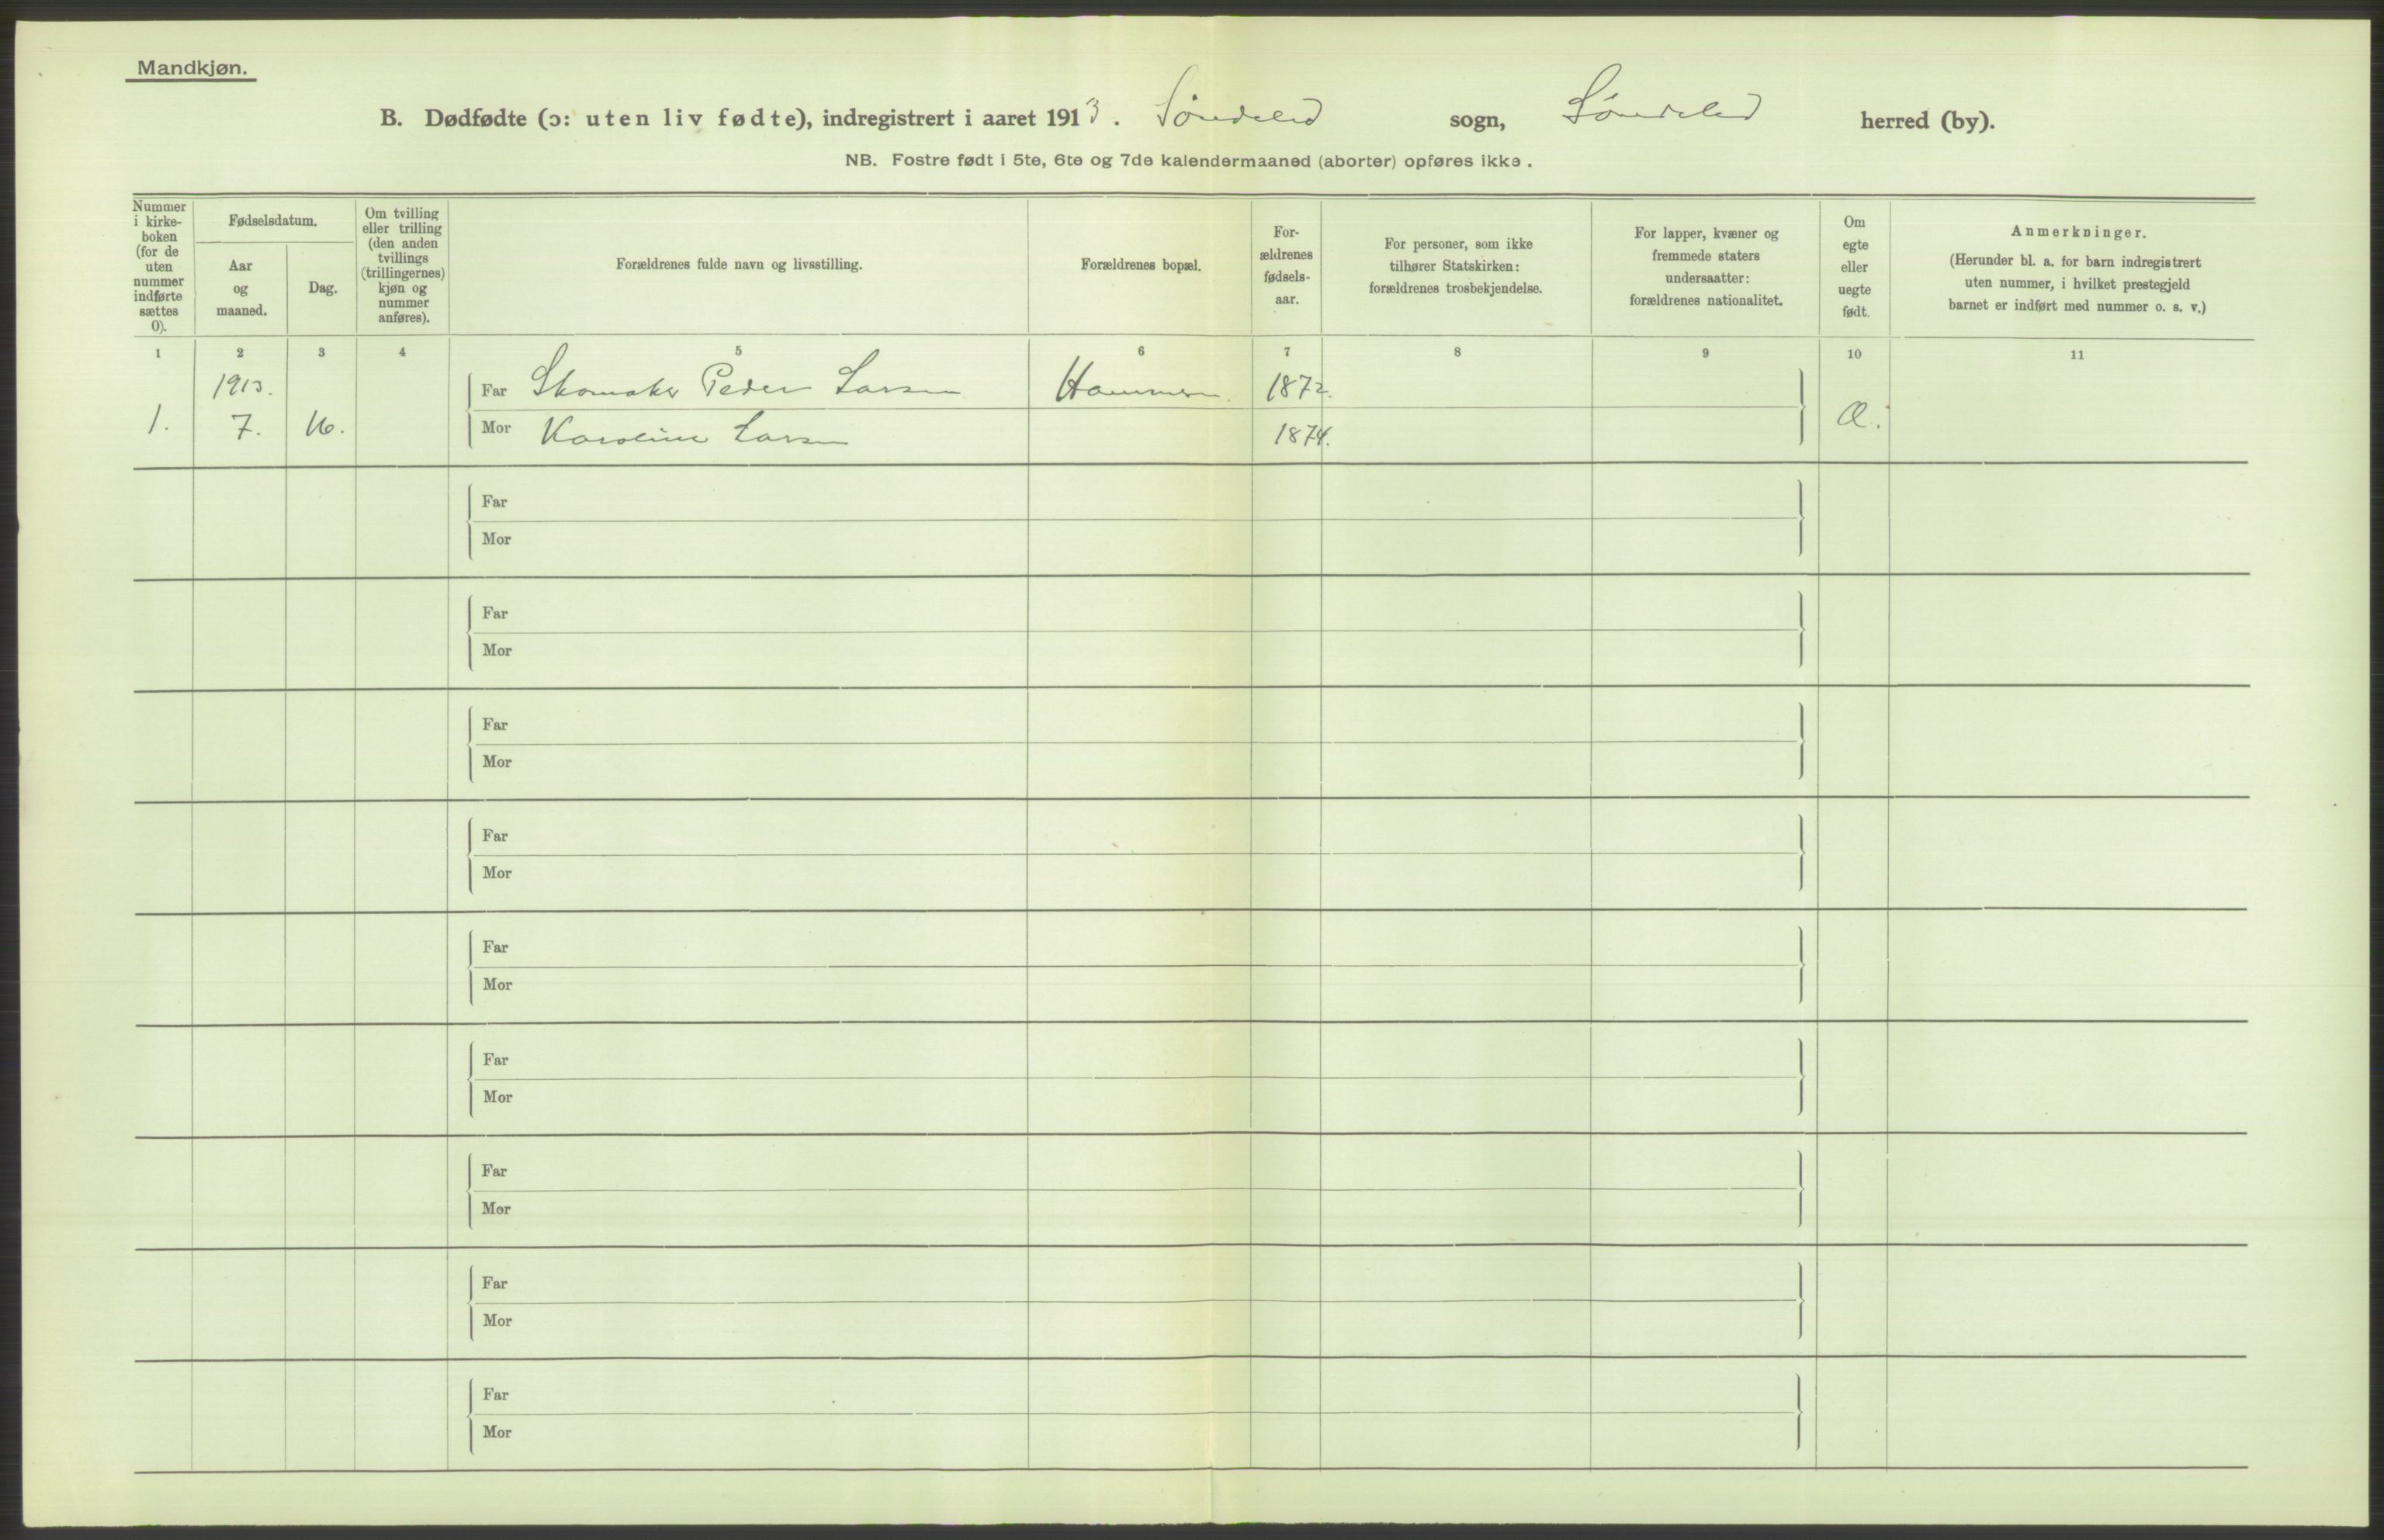 Mandkjøn.
B. Dødfødte (ɔ: uten liv fødte), indregistrert i aaret 1913. Söndeled sogn, Söndeled herred (by).
NB. Fostre født i 5te, 6te og 7de kalendermaaned (aborter) opføres ikke.
Nummer
i kirke-
boken
(for de
uten
nummer
indførte
sættes
0).
Fødselsdatum.
Aar
og
maaned.
Dag.
Om tvilling
eller trilling
(den anden
tvillings
(trillingernes)
kjøn og
nummer
anføres).
Forældrenes fulde navn og livsstilling.
Forældrenes bopæl.
For-
ældrenes
fødsels-
aar.
For personer, som ikke
tilhører Statskirken:
forældrenes trosbekjendelse.
For lapper, kvæner og
fremmede staters
undersaatter:
forældrenes nationalitet.
Om
egte
eller
uegte
født.
Anmerkninger.
(Herunder bl. a. for barn indregistrert
uten nummer, i hvilket prestegjeld
barnet er indført med nummer o. s. v.)
1 2 3 4 5 6 7 8 9 10 11
1913. Far Skomaker Peder Larsen Hammern. 1872.
1. 7. 16. Mor Karoline Larsen 1874. Æ.
Far
Mor
Far
Mor
Far
Mor
Far
Mor
Far
Mor
Far
Mor
Far
Mor
Far
Mor
Far
Mor